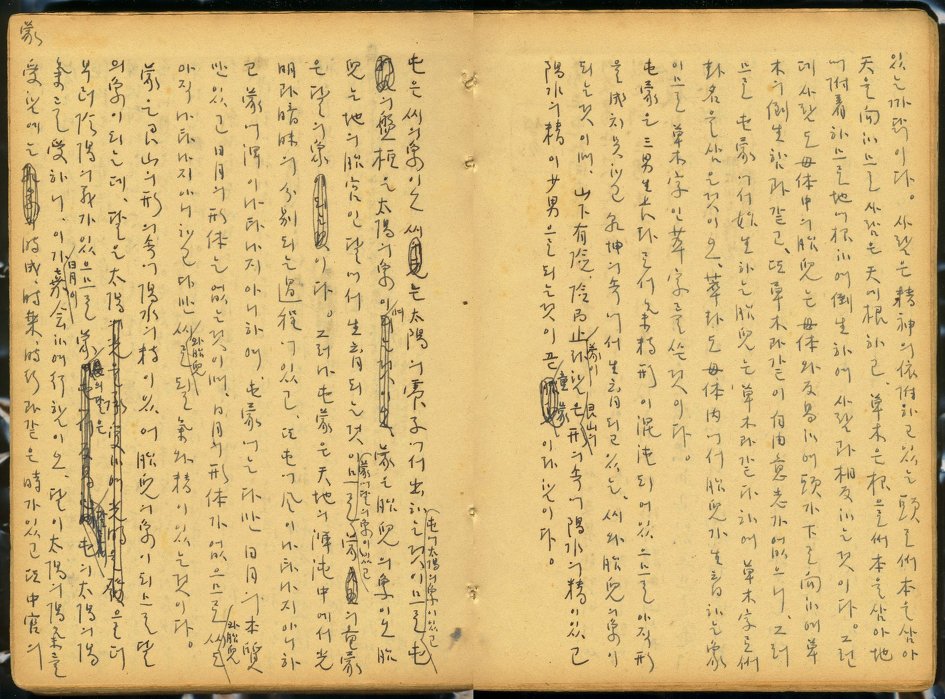 있는 까닭이다. 사람은 精神의 依附하고 있는 頭로써 本을 삼아
天을 向하므로 사람은 天에 根하고, 草木은 根으로써 本을 삼아 地
에 附着하므로 地에 根하여 倒生하여 사람과 相反하는 것이다. 그런
데 사람도 母体中의 胎兒는 母体와 反易하여 頭가 下를 向하여 草
木의 倒生함과 같고, 또 草木과 같이 自由意志가 없으니, 그러
므로 屯蒙에서 始生하는 胎兒는 草木과 같다 하여 草木字로써
卦名을 삼은 것이오, 萃卦도 母体内에서 胎兒가 生育하는 象
이므로 草木字인 萃字를 쓴 것이다.
屯蒙은 三男生 로서 氣精形이 混沌되어 있으므로 아직 形
을 成치 못하고 乾坤의 속에서 生育되고 있는, 씨와 胎兒의 象이
되는 것이며, 山下有險, 險而止라 함은 蒙이 艮山의 形의 속에 陽水의 精이 있고
陽水의 精이 少男으로 되는 것이 곧 童蒙이라 함이다.
蒙
屯은 씨의 象이오 씨는 太陽의 에서 出하는 것이므로 屯에 太陽의 象이 있고 屯
의 盤桓은 太陽의 象이며 蒙은 胎兒의 象이오 胎
兒는 地의 胎宮인 달에서 生育되는 것이므로 蒙에 달의 象이 있고 蒙의 童蒙
은 달의 象이다. 그러나 屯蒙은 天地의 渾沌中에서 光
明과 暗昧의 分別되는 過程에 있고, 또 屯에 이 나타나지 아니하
고 蒙에 이 나타나지 아니하여, 屯蒙에는 다만 日月의 本質
만 있고 日月의 形体는 없는 것이며, 日月의 形体가 없으므로 씨와 胎兒는
아직 나타나지 아니하고 다만 씨와 胎兒로 될 氣와 精이 있는 것이다.
蒙은 艮山의 形의 속에 陽水의 精이 있어 胎兒의 象이 되므로 달
의 象이 되는데, 달은 太陽 으로 더
부러 陰陽의 가 있으므로 蒙의 달은 屯의 太陽의 陽
氣를 受하니, 이가 日月이 會하여 行함이오, 달이 太陽의 陽氣를
受함에는 時成, 時, 時 같은 時가 있고 또 中宮의